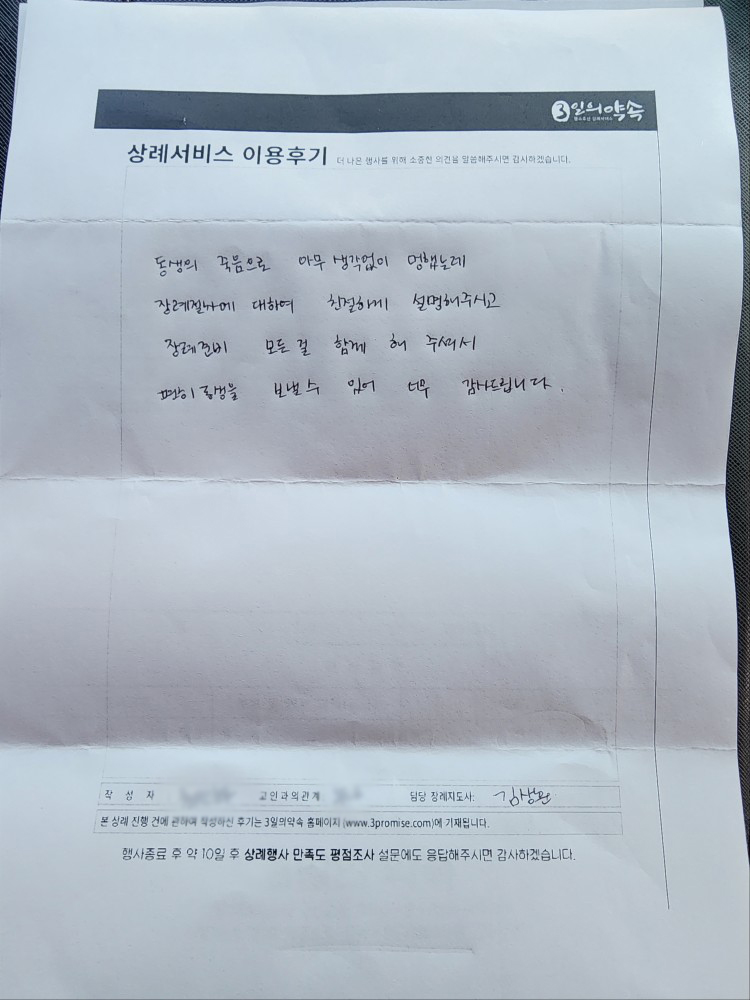 3일의약속
상례서비스 이용후기 더 나은 행사를 위해 소중한 의견을 말씀해주시면 감사하겠습니다.
동생의 죽음으로 아무 생각없이 멍했는데
장례절차에 대하여 친절하게 설명해주시고
장례준비 모든걸 함께 해 주셔서
편히 동생을 보낼수 있어 너무 감사드립니다.
작 성 자 고인과의관계 담당 장례지도사:
본 상례 진행 건에 관하여 작성하신 후기는 3일의약속 홈페이지(www.3promise.com)에 기재됩니다.
행사종료 후 약 10일 후 상례행사 만족도 평점조사 설문에도 응답해주시면 감사하겠습니다.